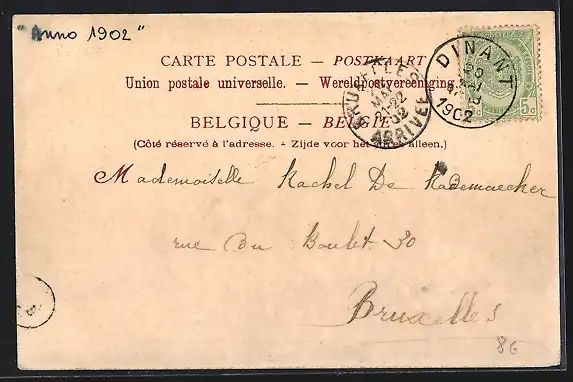 "Anno 1902"
CARTE POSTALE — POSTKAART
Union postale universelle. — Wereldpostvereeniging.
BELGIQUE — BELGIE
(Côté réservé à l'adresse. - Zijde voor het adres alleen.)
DINANT
1902
ARRIVEE
5c
Mademoiselle Rachel De Rademaecker
rue Du Boulet 30
Bruxelles
8G